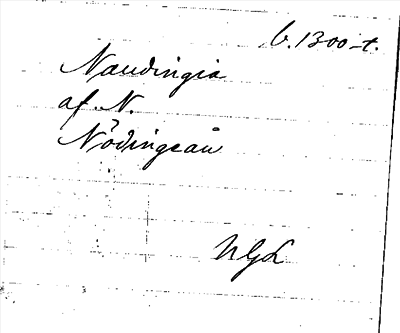 b. 1300-t.
Naudingia
af N.
Nödingeån
NGL